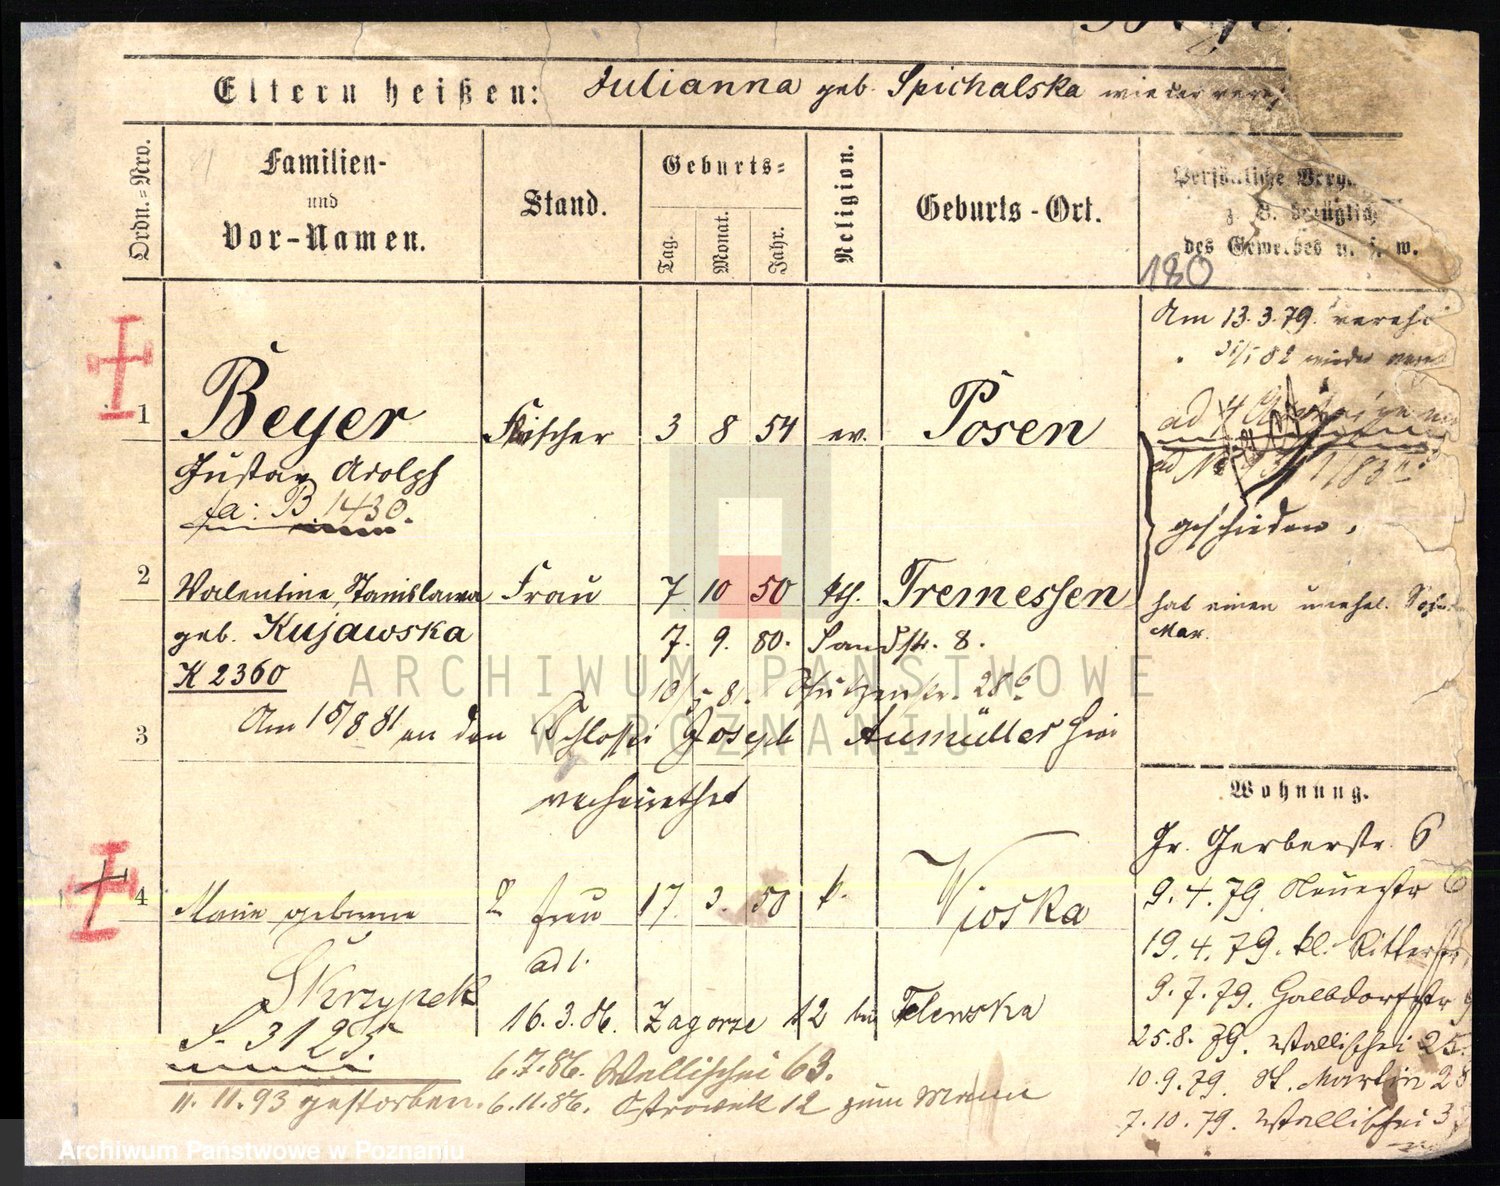 Eltern heißen: Julianna geb. Spichalska wieder
Ordn.=Nro.
Familien- und Vor-Namen.
Stand.
Geburts=
Tag.
Monat.
Jahr.
Religion.
Geburts-Ort.
Persönliche
z. B. bezüglich
des Gewerbes u. s. w.
180
Am 13.3.79. vereh
wieder
1 Beyer Fleischer 3 8 54 ev. Posen
Gustav Adolph
fa: B 1430.
geschieden.
2 Valentine, Stanislawa Frau 7 10 50 kth. Tremessen
geb. Kujawska 7. 9. 80. Sandstr. 8.
K 2360
hat einen unehel. Sohn
Max.
3 Am 15/8 81 an den Schlosser Joseph Aumüller hier
verheirathet
Wohnung.
Gr. Gerberstr. 6
9.4.79. Neuestr 6
19.4.79. kl. Ritterstr.
9.7.79. Halbdorfstr
25.8.79. Wallischei 25.
10.9.79. St. Martin 28
7.10.79. Wallischei 3
4 Marie geborene 2 Frau 17. 3. 50 k. Wioska
ad 1.
Skrzypek
S. 3125.
16.3.86. Zagorze 12 bei Telewska
6.7.86. Wallischei 63.
11.11.93 gestorben. 6.11.86. Ostrowek 12 zum Mann
ARCHIWUM PAŃSTWOWE
W POZNANIU
Archiwum Państwowe w Poznaniu